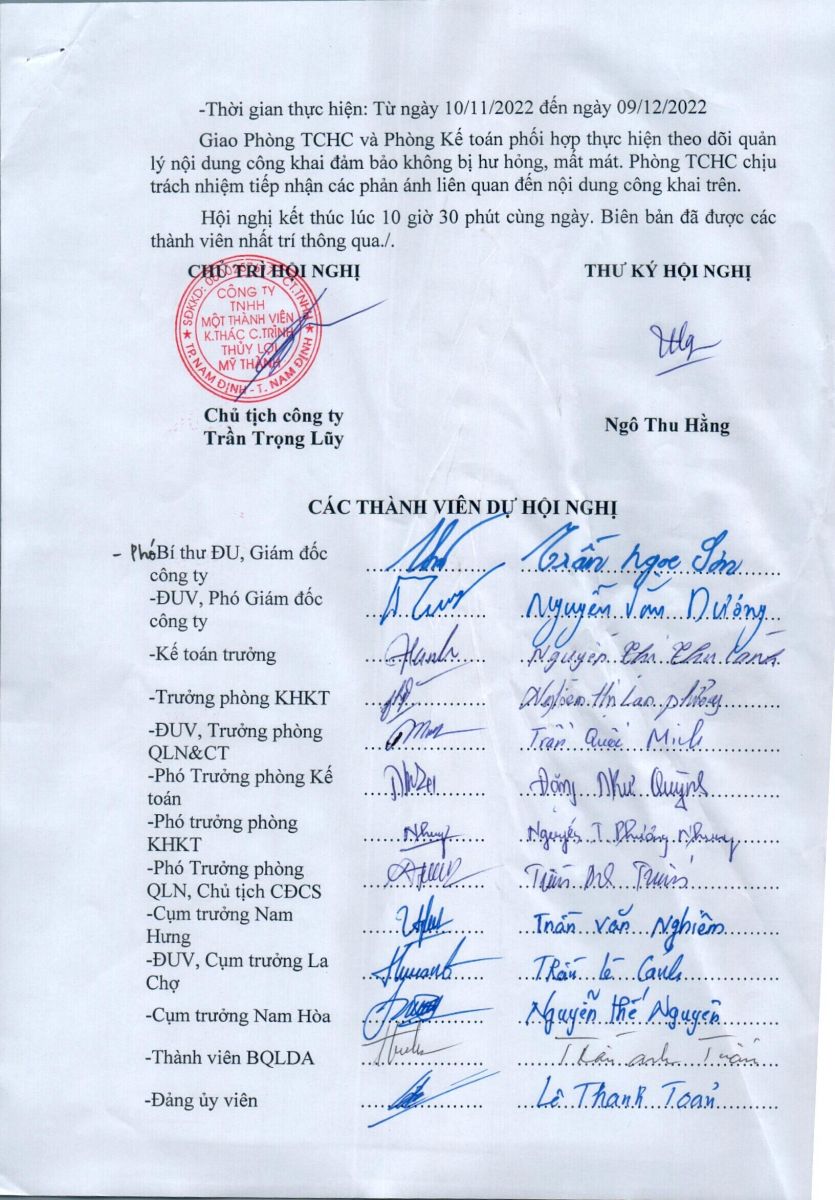 -Thời gian thực hiện: Từ ngày 10/11/2022 đến ngày 09/12/2022
Giao Phòng TCHC và Phòng Kế toán phối hợp thực hiện theo dõi quản
lý nội dung công khai đảm bảo không bị hư hỏng, mất mát. Phòng TCHC chịu
trách nhiệm tiếp nhận các phản ánh liên quan đến nội dung công khai trên.
Hội nghị kết thúc lúc 10 giờ 30 phút cùng ngày. Biên bản đã được các
thành viên nhất trí thông qua./.
CHỦ TRÌ HỘI NGHỊ THƯ KÝ HỘI NGHỊ
CÔNG TY
TNHH
MỘT THÀNH VIÊN
K.THÁC C.TRÌNH
THỦY LỢI
MỸ THÀNH
TP.NAM ĐỊNH - T. NAM ĐỊNH
Chủ tịch công ty
Trần Trọng Lũy Ngô Thu Hằng
CÁC THÀNH VIÊN DỰ HỘI NGHỊ
- Phó Bí thư ĐU, Giám đốc Trần Ngọc Sơn
công ty
-ĐUV, Phó Giám đốc Nguyễn Văn Dưỡng
công ty
-Kế toán trưởng Hanh Nguyễn Thị Thu
-Trưởng phòng KHKT Nghiêm Thị Lan Phương
-ĐUV, Trưởng phòng Trần Quốc Minh
QLN&CT
-Phó Trưởng phòng Kế Đặng Như Quỳnh
toán
-Phó trưởng phòng Nhung Nguyễn T. Phương Nhung
KHKT
-Phó Trưởng phòng Trần
QLN, Chủ tịch CĐCS
-Cụm trưởng Nam Trần Văn Nghiêm
Hưng
-ĐUV, Cụm trưởng La Trần Lê Cảnh
Chợ
-Cụm trưởng Nam Hòa Nguyễn Thế Nguyên
-Thành viên BQLDA Trần Anh Tuấn
-Đảng ủy viên Lê Thanh Toản